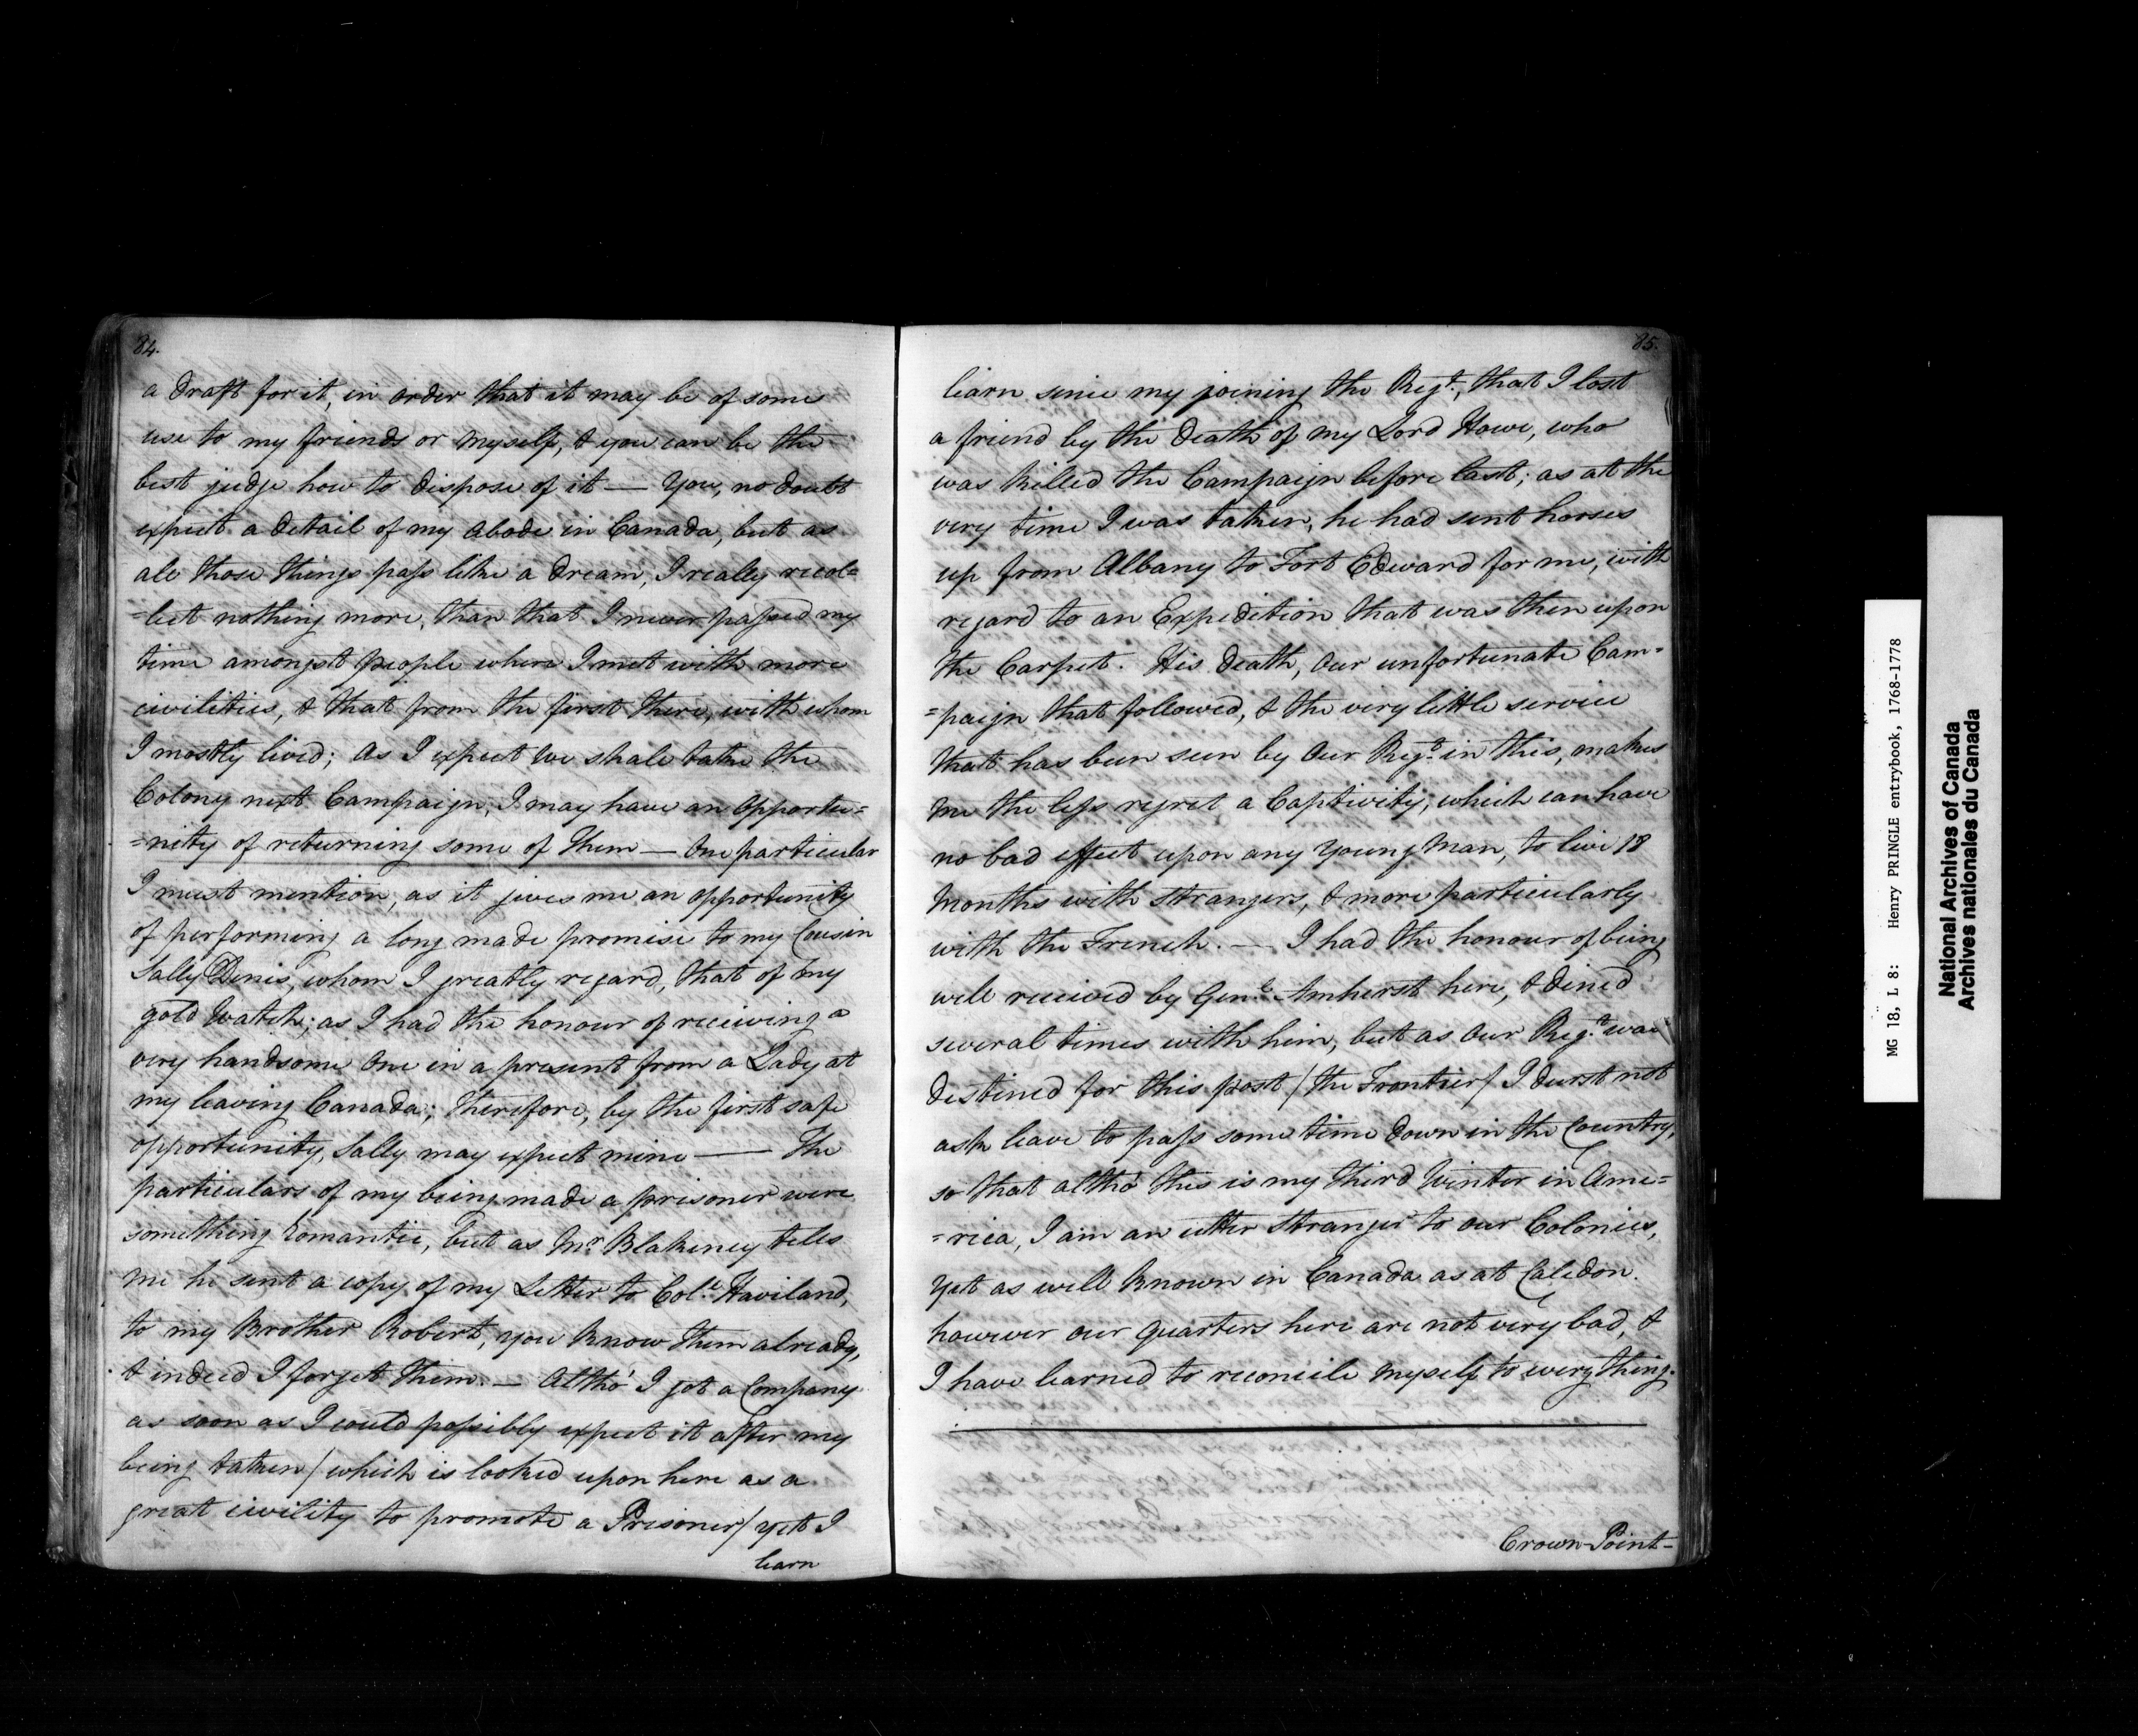 84.
a draft for it, in order that it may be of some
use to my friends or myself, & you can be the
best judge how to dispose of it — You, no doubt
expect a detail of my abode in Canada, but as
all those things pass like a dream, I really recol=
=lect nothing more, than that I never passed my
time amongst people where I met with more
civilities, & that from the first there, with whom
I mostly lived; As I expect we shall take the
Colony next Campaign, I may have an opportu=
=nity of returning some of them — One particular
I must mention, as it gives me an opportunity
of performing a long made promise to my Cousin
Sally Denis, whom I greatly regard, that of my
gold Watch; as I had the honour of receiving a
very handsome one in a present from a Lady at
my leaving Canada; therefore, by the first safe
opportunity, Sally may expect mine — The
particulars of my being made a prisoner were
something Romantic, but as Mr. Blakeney tells
me he sent a copy of my Letter to Col.l Haviland,
to my Brother Robert, you know them already,
& indeed I forget them. — Altho' I got a Company
as soon as I could possibly expect it after my
being taken / which is looked upon here as a
great civility to promote a Prisoner / yet I
learn
85.
learn since my joining the Reg.t, that I lost
a friend by the death of my Lord Howe, who
was killed the Campaign before last; as at the
very time I was taken, he had sent horses
up from Albany to Fort Edward for me, with
regard to an Expedition that was then upon
the Carpet. His death, our unfortunate Cam=
=paign that followed, & the very little service
that has been seen by our Reg.t in this, makes
me the less regret a Captivity, which can have
no bad effect upon any Young Man, to live 18
Months with strangers, & more particularly
with the French. — I had the honour of being
well received by Gen.l Amherst here, & dined
several times with him, but as our Reg.t was
destined for this post / the Frontier / I durst not
ask leave to pass some time down in the Country,
so that altho' this is my third Winter in Ame=
=rica, I am an utter Stranger to our Colonies,
yet as well known in Canada as at Caledon.
however our quarters here are not very bad, &
I have learned to reconcile myself to every thing.
Crown-Point-
MG 18, L 8: Henry PRINGLE entrybook, 1768-1778
National Archives of Canada
Archives nationales du Canada